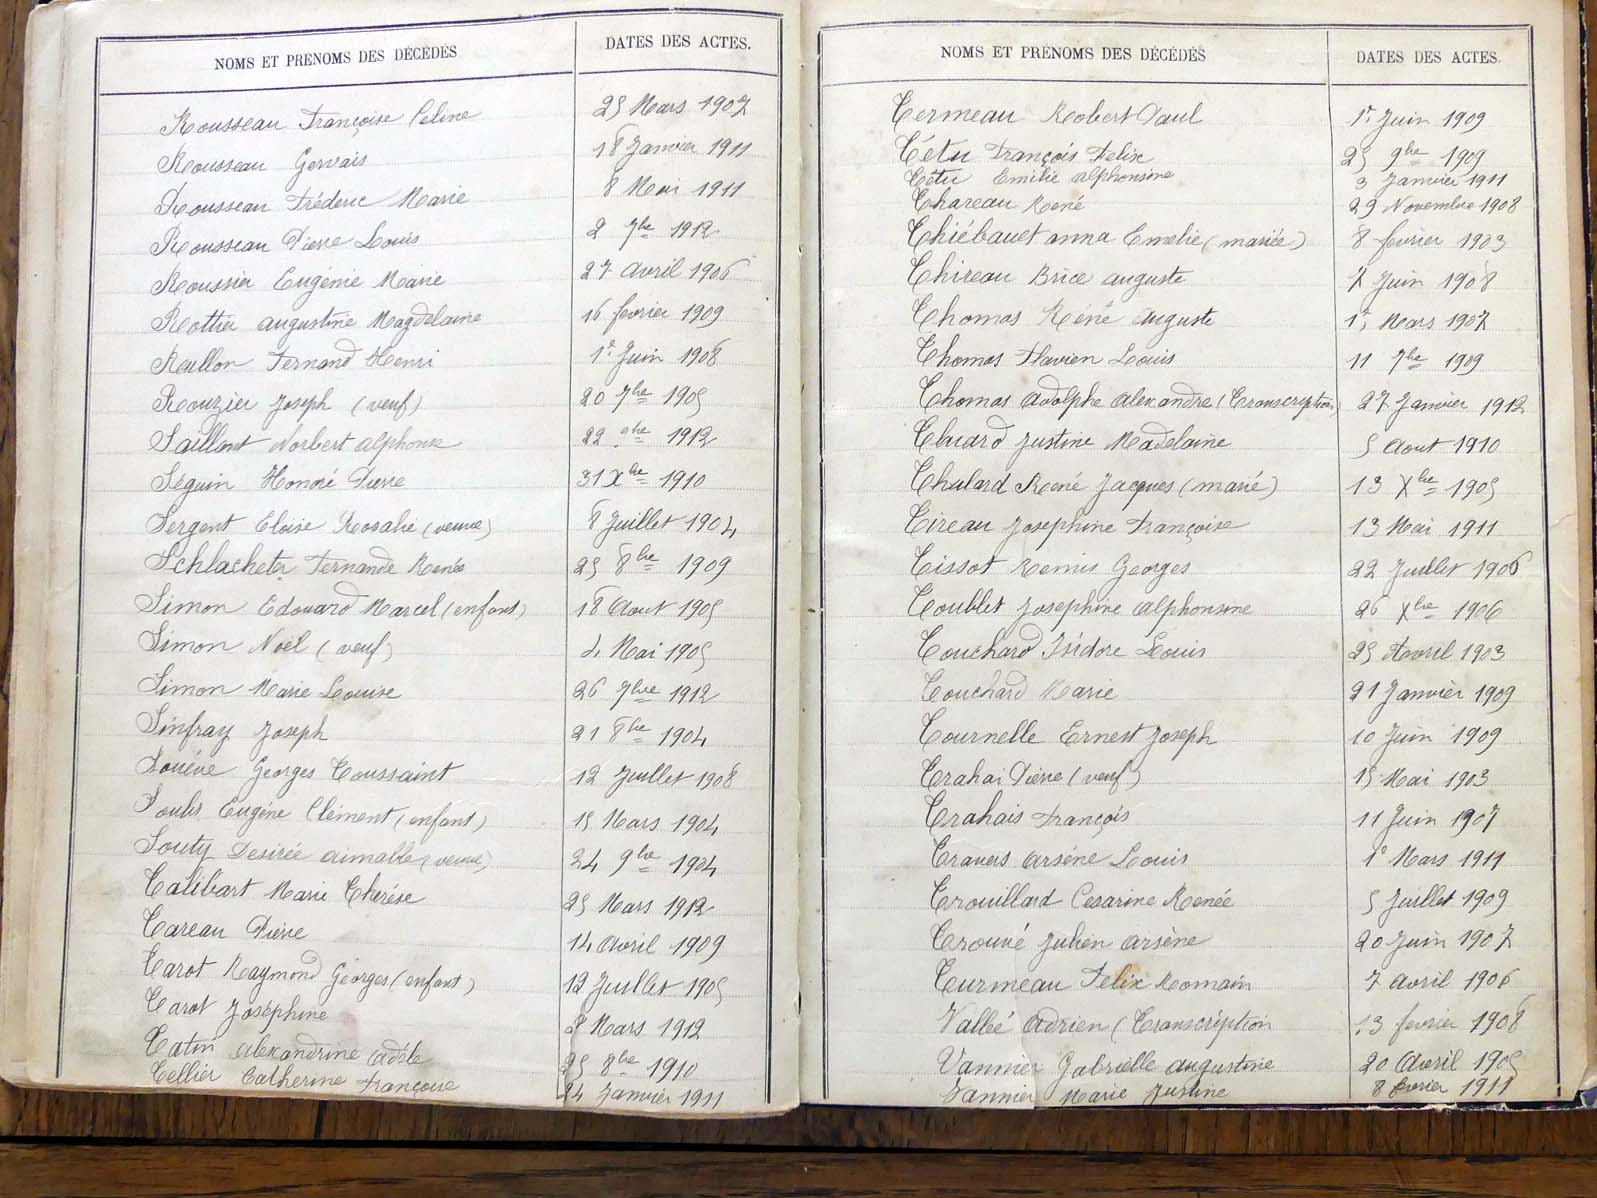 NOMS ET PRÉNOMS DES DÉCÉDÉS DATES DES ACTES.
Rousseau Françoise Céline 25 Mars 1907
Rousseau Gervais 18 Janvier 1911
Rousseau Fréderic Marie 8 Mai 1911
Rousseau Pierre Louis 2 7bre 1912
Roussier Eugénie Marie 27 Avril 1906
Rottier augustine Magdelaine 16 fevrier 1909
Rullon Fernand Henri 1er Juin 1908
Rouzier Joseph (veuf) 20 7bre 1905
Saillant Norbert alphonse 22 9bre 1912
Séguin Honoré Pierre 31 Xbre 1910
Sergent Eloise Rosalie (veuve) 8 Juillet 1904
Schlacheter Fernande Renée 25 8bre 1909
Simon Edouard Marcel (enfant) 18 Aout 1905
Simon Noël (veuf) 4 Mai 1905
Simon Marie Louise 26 7bre 1912
Sinfray Joseph 21 8bre 1904
Souéve Georges Toussaint 12 Juillet 1908
Soulis Eugène Clément (enfant) 15 Mars 1904
Souty Desirée aimable (veuve) 24 9bre 1904
Talibart Marie Thérèse 25 Mars 1912
Tareau Pierre 14 Avril 1909
Tarot Raymond Georges (enfant) 12 Juillet 1905
Tarot Joséphine Mars 1912
Tatin Alexandrine Adéle 25 8bre 1910
Tellier Catherine Françoise 24 Janvier 1911
NOMS ET PRÉNOMS DES DÉCÉDÉS DATES DES ACTES.
Termeau Robert Paul 1er Juin 1909
Tétu François Felix 25 9bre 1909
Tétu Emilie alphonsine 3 Janvier 1911
Thareau René 29 Novembre 1908
Thiébauet anna Emelie (mariée) 8 fevrier 1903
Thireau Brice auguste 7 Juin 1908
Thomas Réné auguste 1er Mars 1907
Thomas Flavien Louis 11 7bre 1909
Thomas Adolphe Alexandre (Transcription) 27 Janvier 1912
Thuard Justine Madelaine 5 Aout 1910
Thulard René Jacques (marié) 13 Xbre 1905
Tireau Josephine Françoise 13 Mai 1911
Tissot Remis Georges 22 Juillet 1906
Toublet Josephine Alphonsine 26 Xbre 1906
Touchard Isidore Louis 25 Avril 1903
Touchard Marie 21 Janvier 1909
Tournelle Ernest Joseph 10 Juin 1909
Trahai Pierre (veuf) 15 Mai 1903
Trahais François 11 Juin 1907
Travers Arséne Louis 1e Mars 1911
Trouillard Cesarine Renée 5 Juillet 1909
Trouvé Julien Arsène 20 Juin 1907
Turmeau Felix Romain 7 Avril 1906
Vallée Adrien (Transcription 13 fevrier 1908
Vannier Gabrielle Augustine 20 Avril 1905
Vannier Marie Justine 8 fevrier 1911